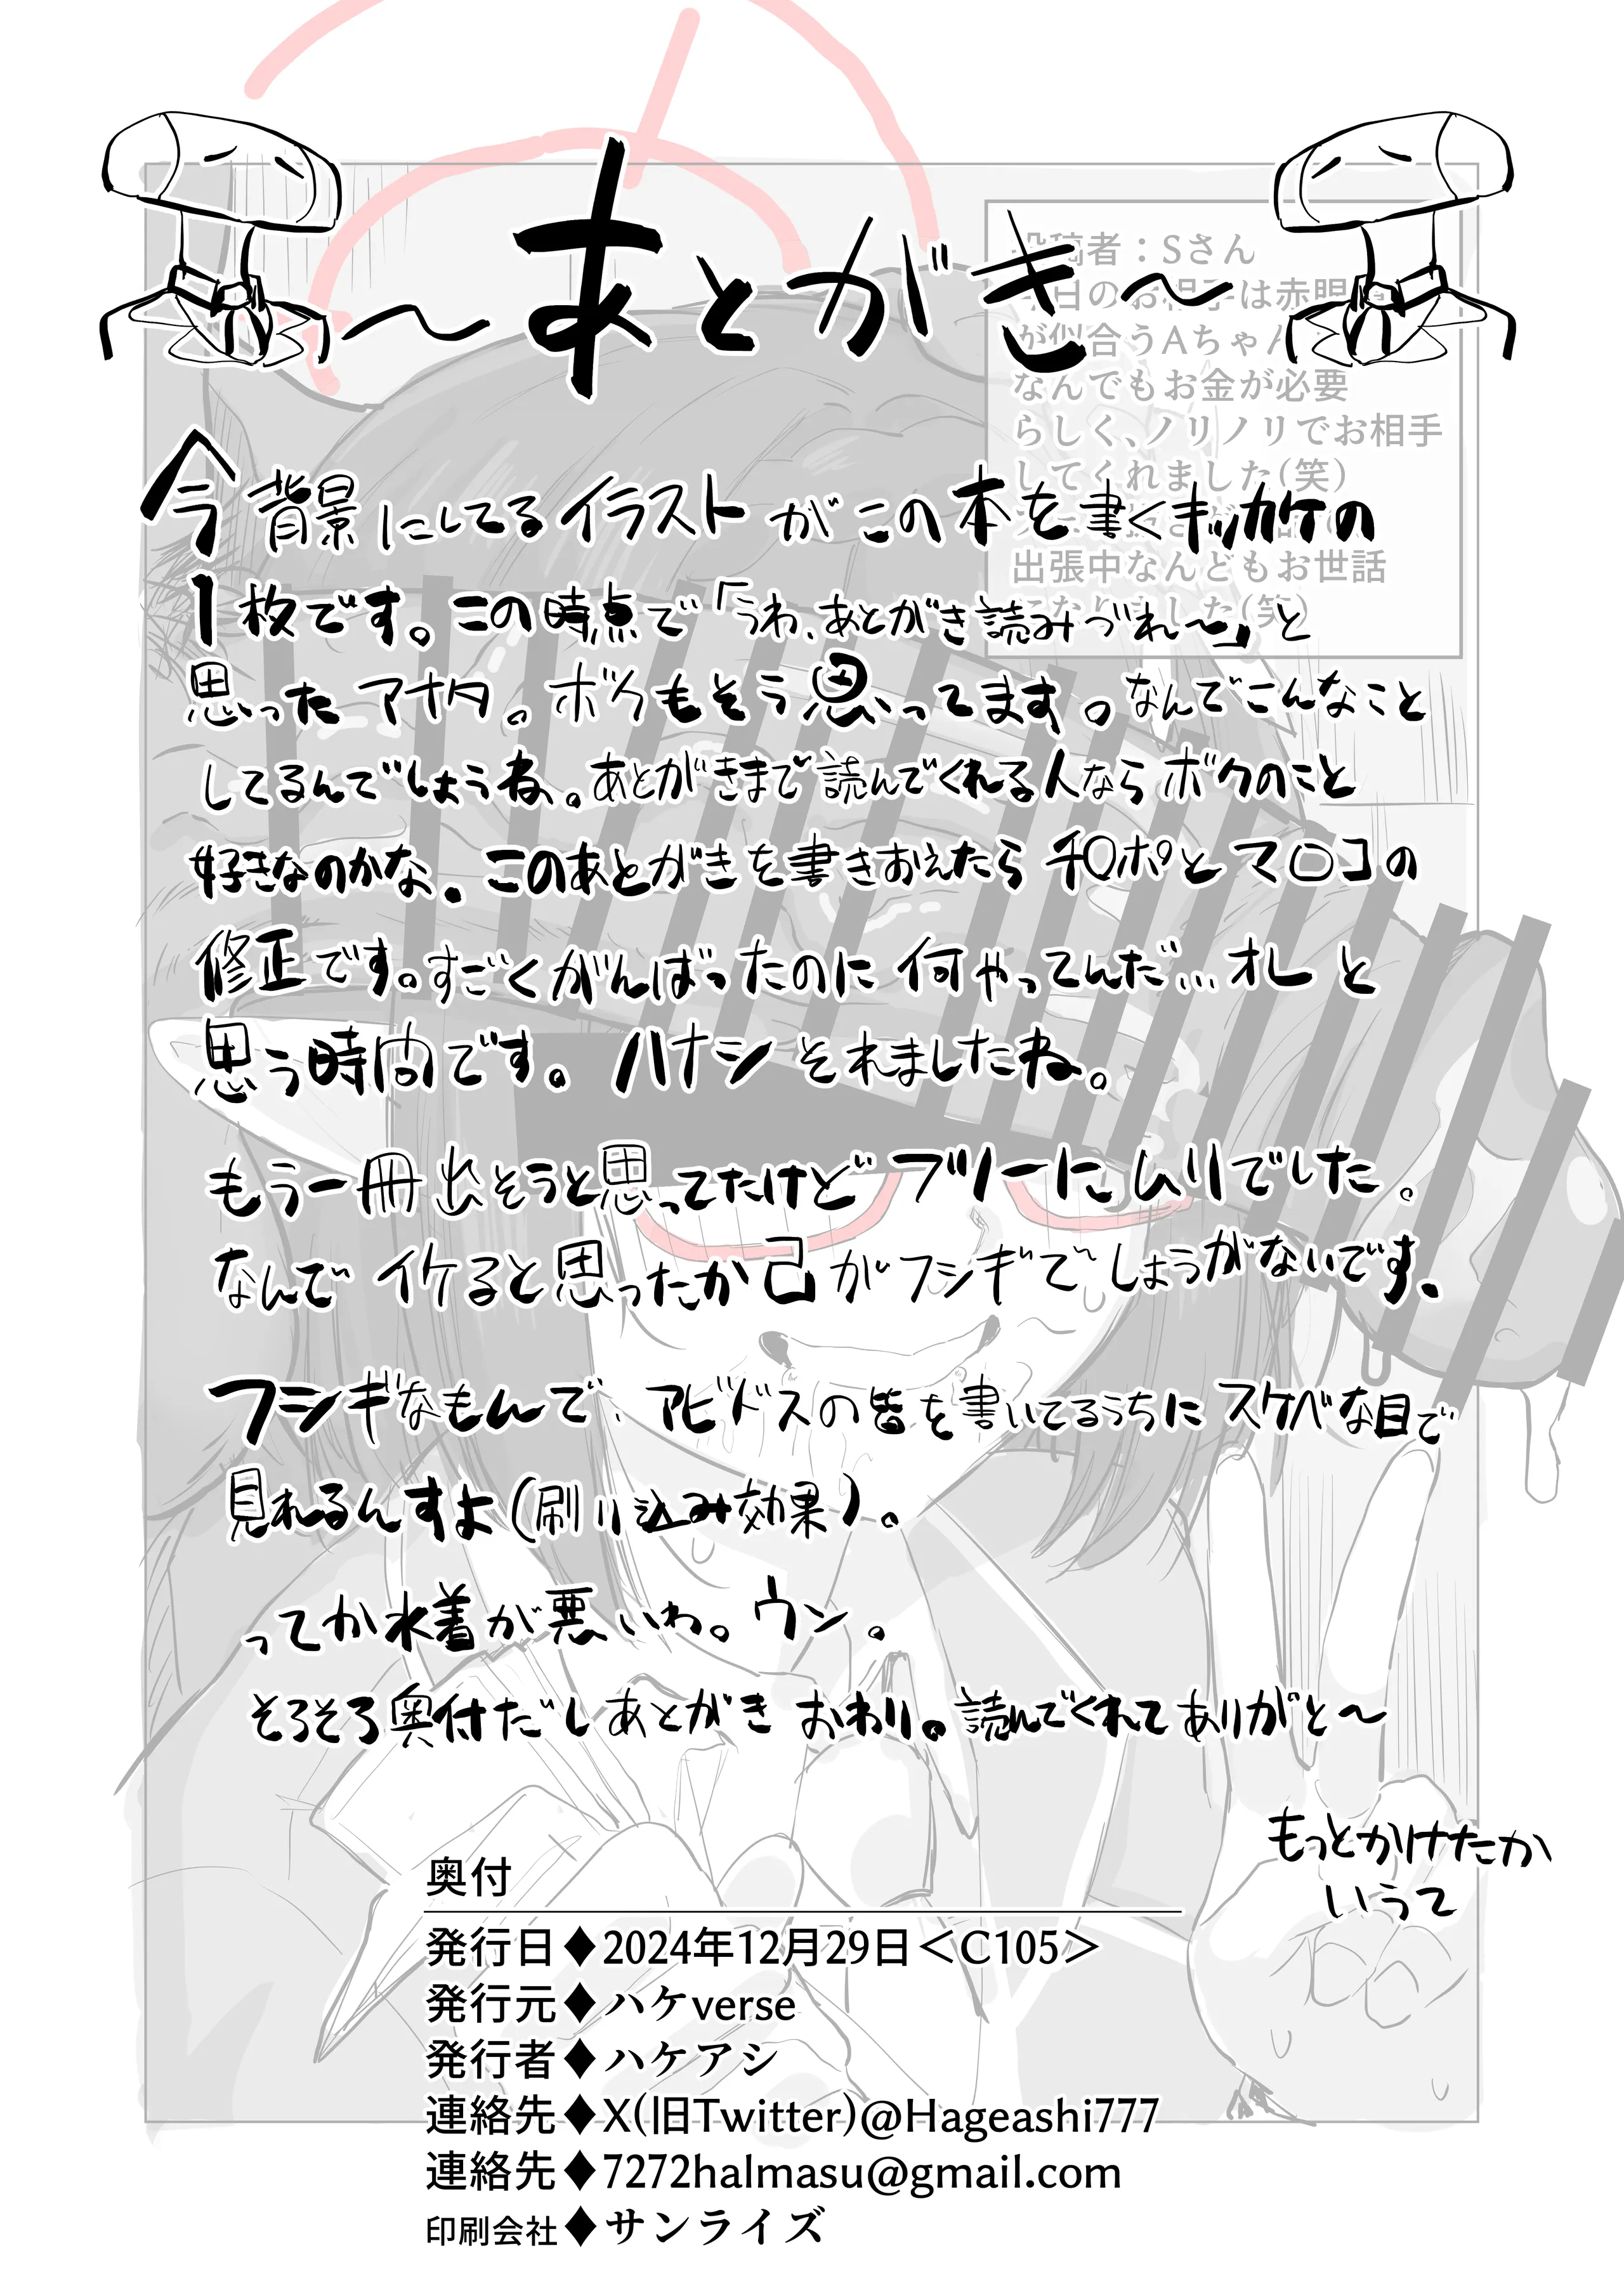 ～あとがき～
今背景にしてるイラストがこの本を書くキッカケの
1枚です。この時点で「うわ、あとがき読みづれ～」と
思ったアナタ。ボクもそう思ってます。なんでこんなこと
してるんでしょうね。あとがきまで読んでくれる人ならボクのこと
好きなのかな。このあとがきを書きおえたらチ○ポとマ○コの
修正です。すごくがんばったのに何やってんだ…オレと
思う時間です。ハナシそれましたね。
もう一冊出そうと思ってたけどフツーにムリでした。
なんでイケると思ったか己がフシギでしょうがないです。
フシギなもんで、アビドスの皆を書いてるうちにスケベな目で
見れるんすよ(刷り込み効果)。
ってか水着が悪いわ。ウン。
そろそろ奥付だしあとがきおわり。読んでくれてありがと～
もっとかけたか
いうて
奥付
発行日♦2024年12月29日＜C105＞
発行元♦ハケverse
発行者♦ハケアシ
連絡先♦X(旧Twitter)@Hageashi777
連絡先♦7272halmasu@gmail.com
印刷会社♦サンライズ